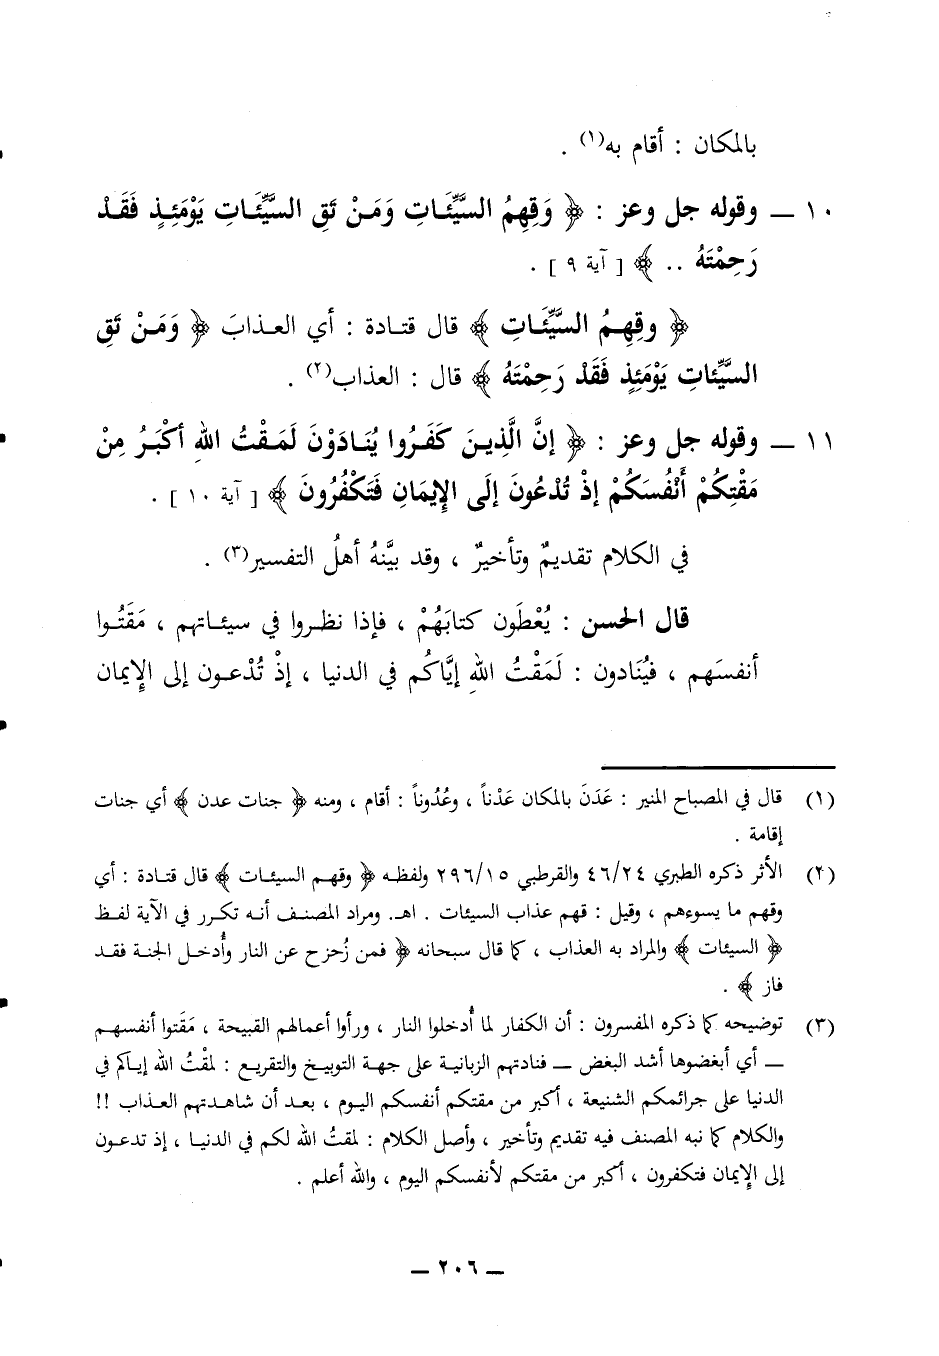 بالمكان : أقام به(١) .
١٠ ــ وقوله جل وعز : ﴿ وَقِهِمُ السَّيِّئَاتِ وَمَنْ تَقِ السَّيِّئَاتِ يَوْمَئِذٍ فَقَدْ
رَحِمْتَهُ .. ﴾ [ آية ٩ ] .
﴿ وقِهِمُ السَّيِّئَاتِ ﴾ قال قتادة : أي العذابَ ﴿ وَمَنْ تَقِ
السَّيِّئاتِ يَوْمَئِذٍ فَقَدْ رَحِمْتَهُ ﴾ قال : العذاب(٢) .
١١ ــ وقوله جل وعز : ﴿ إنَّ الَّذِينَ كَفَرُوا يُنَادَوْنَ لَمَقْتُ اللهِ أكْبَرُ مِنْ
مَقْتِكُمْ أَنْفُسَكُمْ إذْ تُدْعُونَ إلَى الإِيمَانِ فَتَكْفُرُونَ ﴾ [ آية ١٠ ] .
في الكلام تقديمٌ وتأخيرٌ ، وقد بيَّنهُ أهلُ التفسير(٣) .
قال الحسن : يُعْطَون كتابَهُمْ ، فإذا نظروا في سيئاتهم ، مَقَتُوا
أنفسَهم ، فيُنَادون : لَمَقْتُ اللهِ إيَّاكُم في الدنيا ، إذْ تُدْعون إلى الإِيمان
(١) قال في المصباح المنير : عَدَنَ بالمكان عَدْناً ، وعُدُوناً : أقام ، ومنه ﴿ جنات عدن ﴾ أي جنات
إقامة .
(٢) الأثر ذكره الطبري ٤٦/٢٤ والقرطبي ٢٩٦/١٥ ولفظه ﴿ وقهم السيئات ﴾ قال قتادة : أي
وقهم ما يسوءهم ، وقيل : قهم عذاب السيئات . اهـ. ومراد المصنف أنه تكرر في الآية لفظ
﴿ السيئات ﴾ والمراد به العذاب ، كما قال سبحانه ﴿ فمن زُحزح عن النار وأُدخل الجنة فقد
فاز ﴾ .
(٣) توضيحه كما ذكره المفسرون : أن الكفار لما أُدخلوا النار ، ورأوا أعمالهم القبيحة ، مَقَتوا أنفسهم
ــ أي أبغضوها أشد البغض ــ فنادتهم الزبانية على جهة التوبيخ والتقريع : لمقْتُ الله إياكم في
الدنيا على جرائمكم الشنيعة ، أكبر من مقتكم أنفسكم اليوم ، بعد أن شاهدتهم العذاب !!
والكلام كما نبه المصنف فيه تقديم وتأخير ، وأصل الكلام : لمقتُ الله لكم في الدنيا ، إذ تدعون
إلى الإِيمان فتكفرون ، أكبر من مقتكم لأنفسكم اليوم ، والله أعلم .
ــ ٢٠٦ ــ